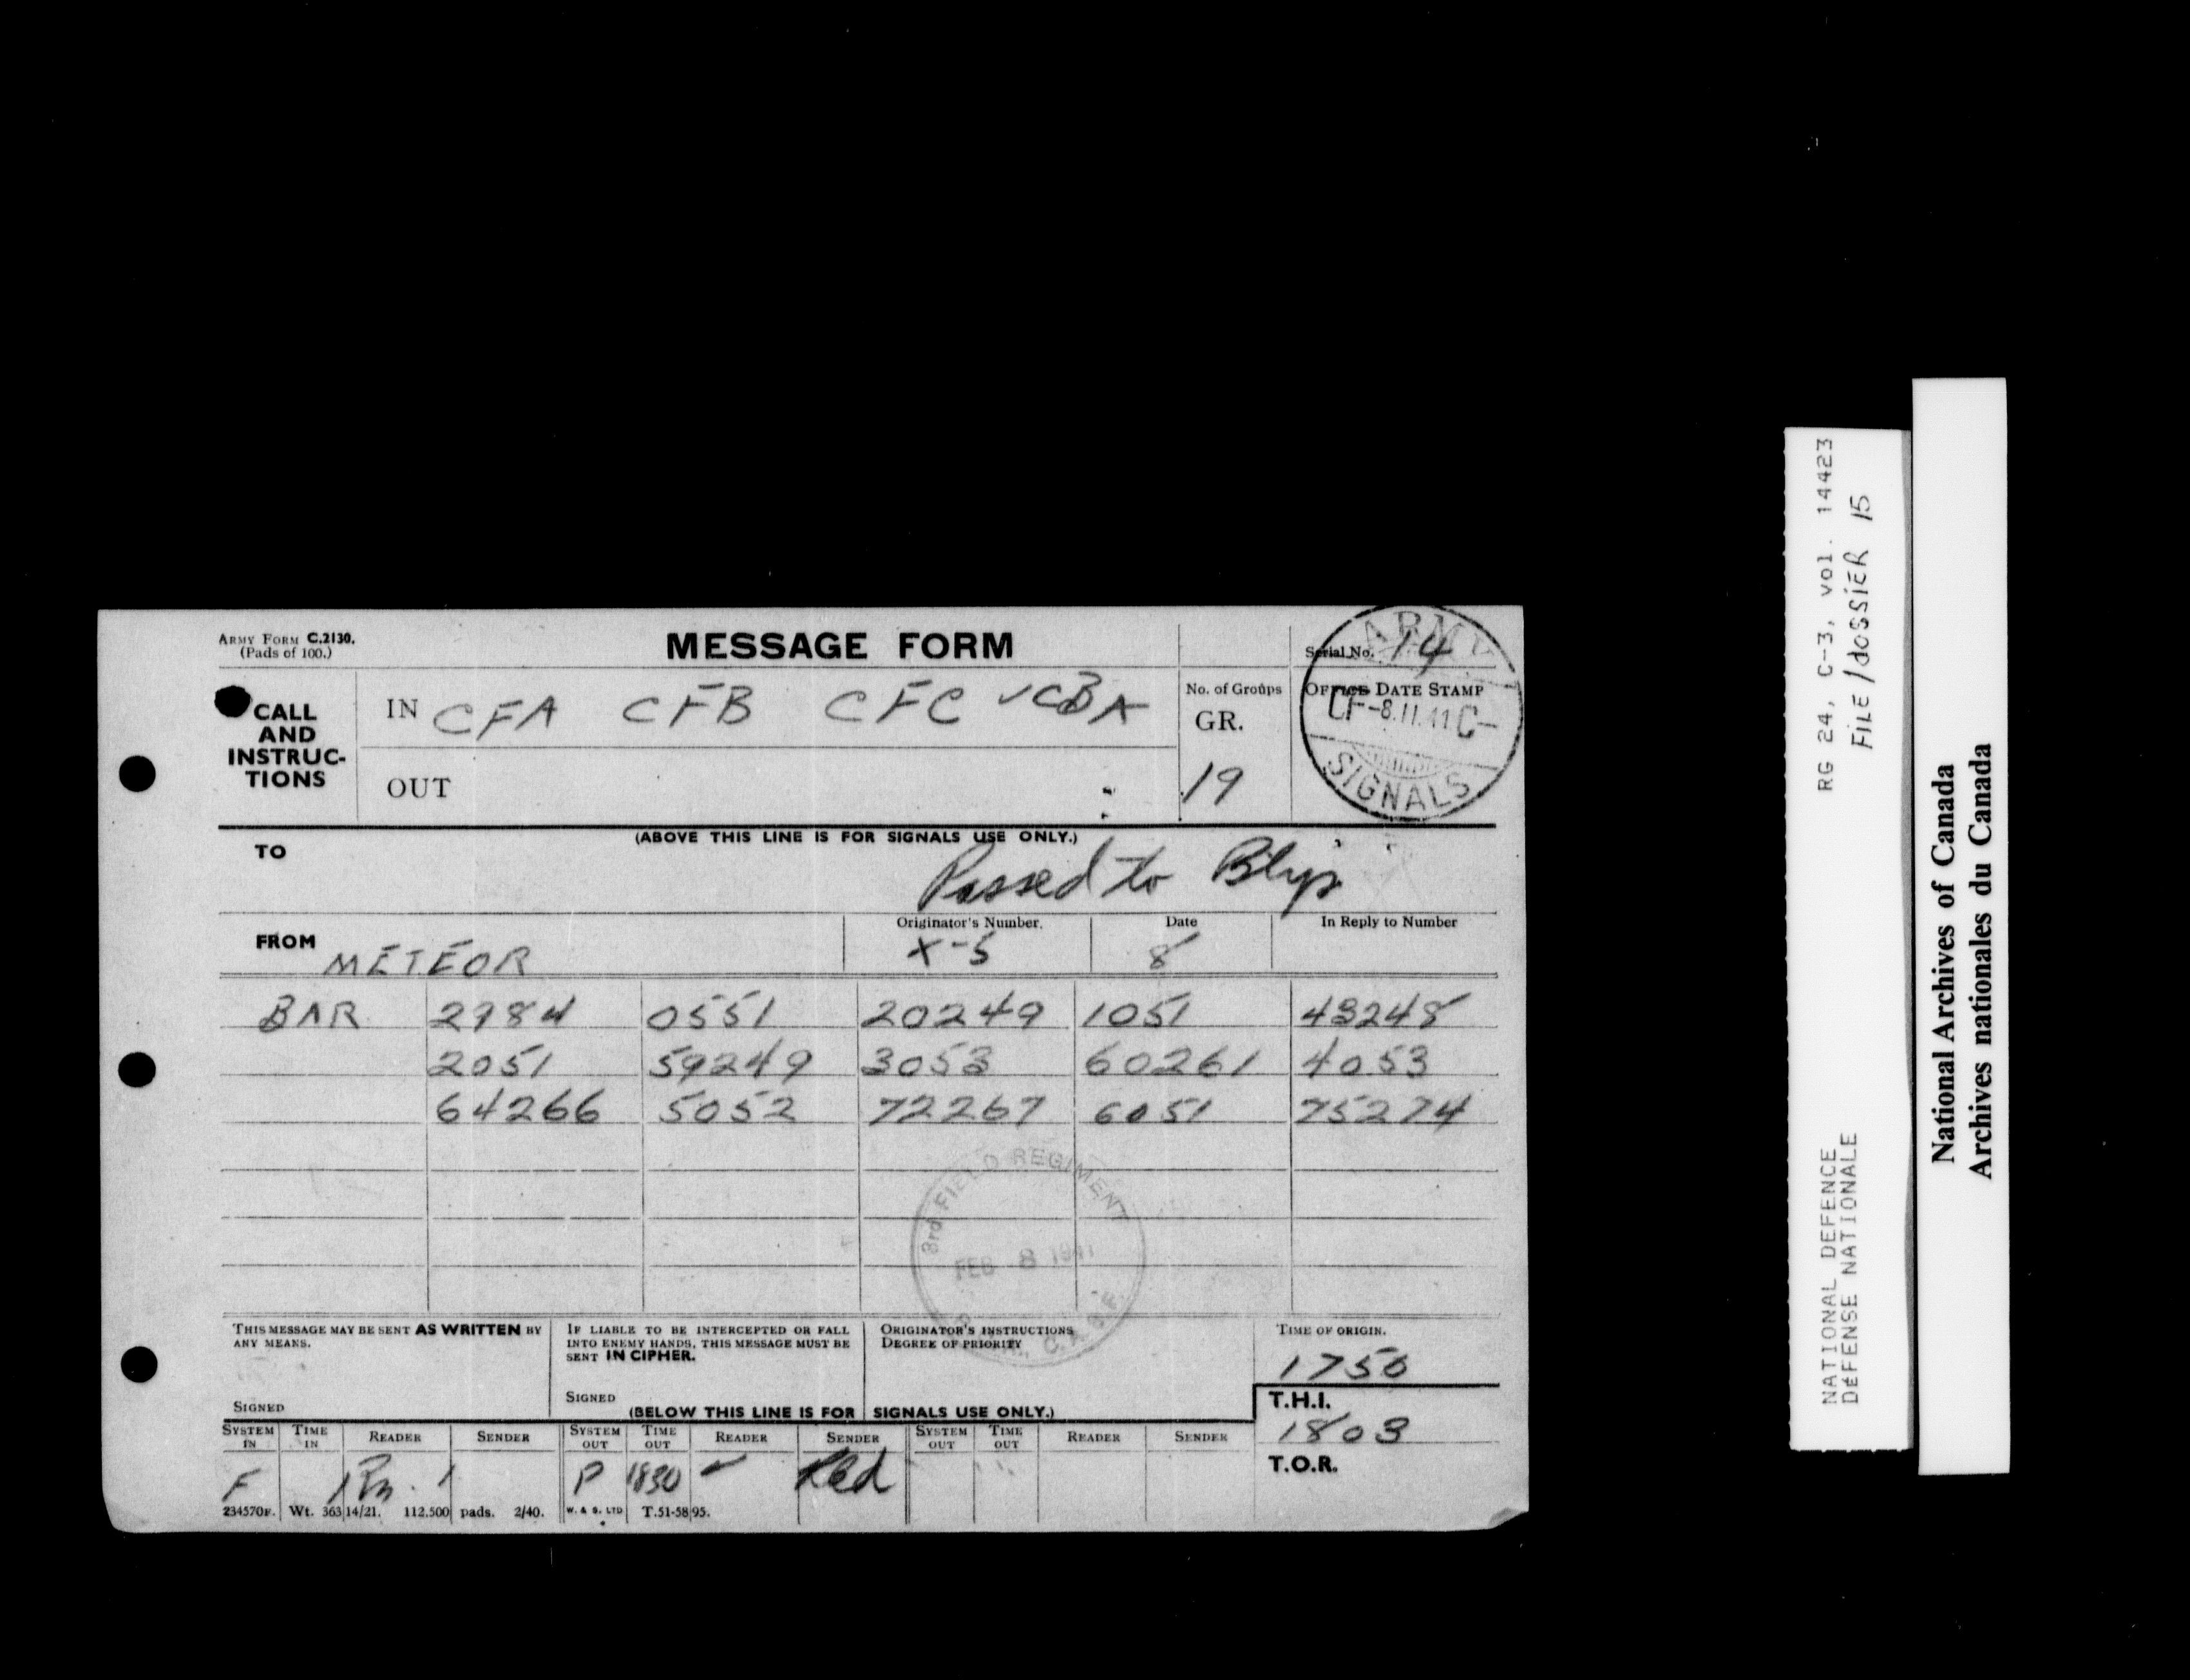 ARMY FORM C.2130.
(Pads of 100.)
MESSAGE FORM
Serial No. 14
ARMY
SIGNALS
CALL AND INSTRUC-TIONS
IN CFA CFB CFC VCBA
OUT
No. of Groups
GR.
19
OFFICE DATE STAMP
CF -8.11.41 C-
(ABOVE THIS LINE IS FOR SIGNALS USE ONLY.)
TO
Passed to
FROM METEOR
Originator's Number.
X-5
Date
8
In Reply to Number
BAR 2984 0551 20249 1051 43248
2051 59249 3053 60261 4053
64266 5052 72267 6051 75274
3rd FIELD REGIMENT
FEB 8 1941
THIS MESSAGE MAY BE SENT AS WRITTEN BY
ANY MEANS.
SIGNED
IF LIABLE TO BE INTERCEPTED OR FALL
INTO ENEMY HANDS, THIS MESSAGE MUST BE
SENT IN CIPHER.
SIGNED
ORIGINATOR'S INSTRUCTIONS
DEGREE OF PRIORITY
TIME OF ORIGIN.
1750
T.H.I.
1803
T.O.R.
(BELOW THIS LINE IS FOR SIGNALS USE ONLY.)
SYSTEM IN TIME IN READER SENDER SYSTEM OUT TIME OUT READER SENDER SYSTEM OUT TIME OUT READER SENDER
F P 1830
234570F. Wt. 36314/21. 112.500 pads. 2/40. W. & S. LTD T.51-5895.
RG 24, C-3, vol. 14423
FILE/dossier 15
NATIONAL DEFENCE
DÉFENSE NATIONALE
National Archives of Canada
Archives nationales du Canada